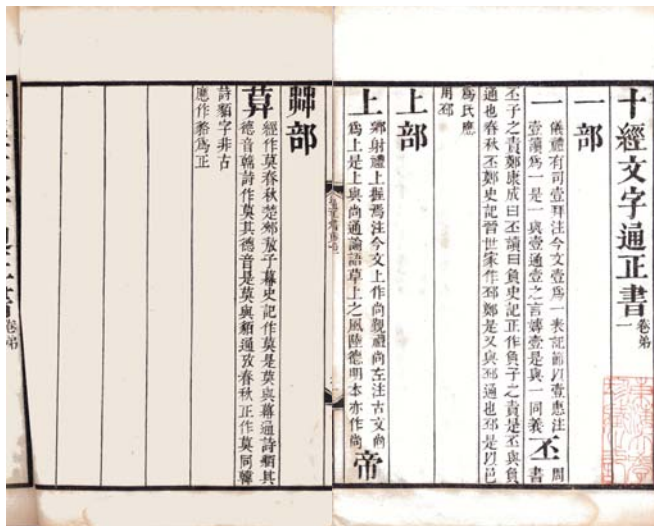 十經文字通正書 卷弟一
一部
一 儀禮有司壹拜注今文壹爲一表記節以壹惠注
壹讀爲一是一與壹通壹之言專壹是與一同義 丕 周書
丕子之責鄭康成曰丕讀曰負史記正作負子之責是丕與負
通也春秋丕鄭史記晉世家作邳鄭是又與邳通也邳是以邑
爲氏應
用邳
上部
上 鄉射禮上握焉注今文上作尚覲禮尚左注古文尚
爲上是上與尚通論語草上之風陸德明本亦作尚 帝
茻部
莫 經作莫春秋楚郟敖子幕史記作莫是莫與幕通詩貊其
德音韓詩作莫其德音是莫與貊通攷春秋正作莫同韓
詩貊字非古
應作貉爲正